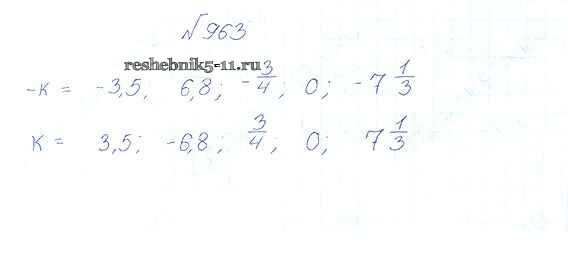 №963
reshebnik5-11.ru
-к = -3,5, 6,8; -3/4; 0; -7 1/3
к = 3,5; -6,8; 3/4; 0; 7 1/3